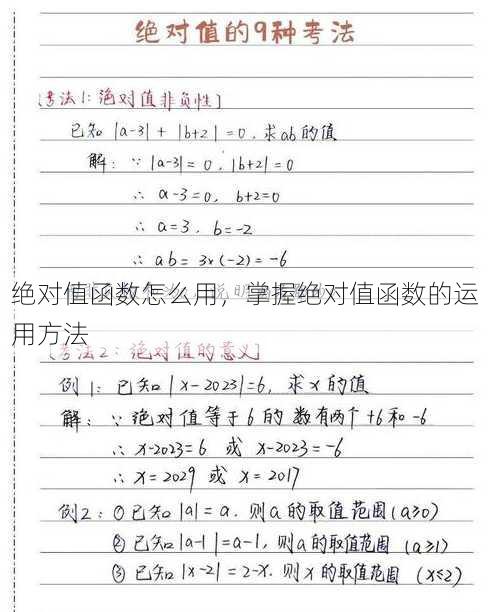 绝对值的9种考法
[考法1:绝对值非负性]
已知 |a-3| + |b+2| = 0, 求ab的值
解: ∵ |a-3| = 0, |b+2| = 0
∴ a-3=0, b+2=0
∴ a=3, b=-2
∴ ab= 3×(-2) = -6
绝对值函数怎么用,掌握绝对值函数的运
用方法
[考法2:绝对值的意义]
例1: 已知 |x-2023|=6, 求x的值
解: ∵ 绝对值等于6的数有两个 +6和-6
∴ x-2023=6 或 x-2023=-6
∴ x=2029 或 x=2017
例2: ①已知|a|=a, 则a的取值范围(a≥0)
②已知|a-1|=a-1, 则a的取值范围 (a≥1)
③已知|x-2|=2-x, 则x的取值范围 (x≤2)